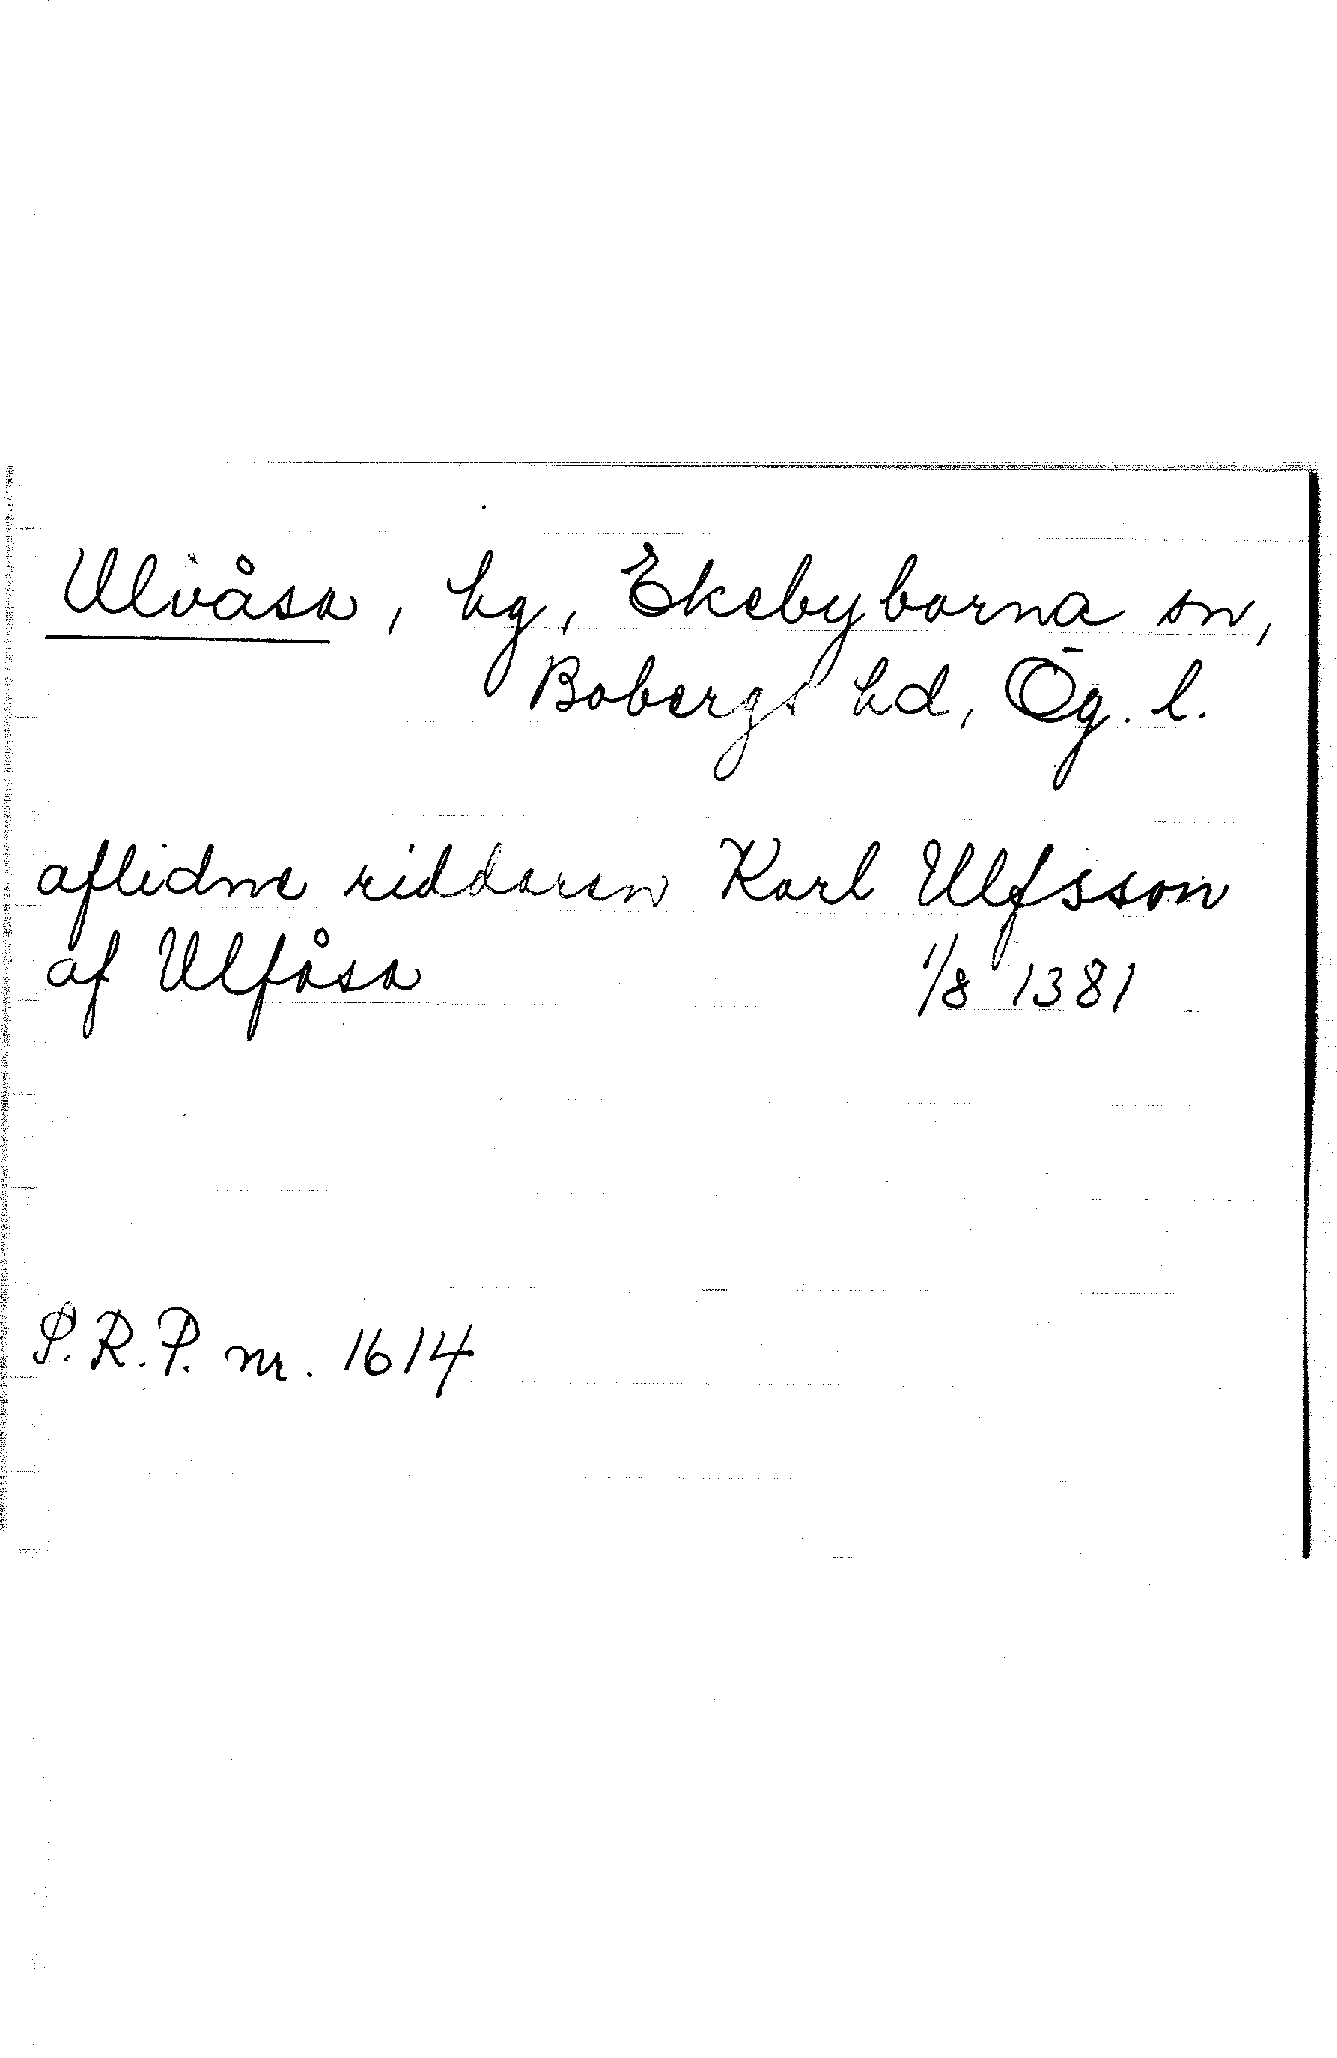 Ulvåsa, hg, Ekebyborna sn,
Bobergs hd, Ög. l.
aflidne riddaren Karl Ulfsson
af Ulfåsa 1/8 1381
S.R.P. nr. 1614